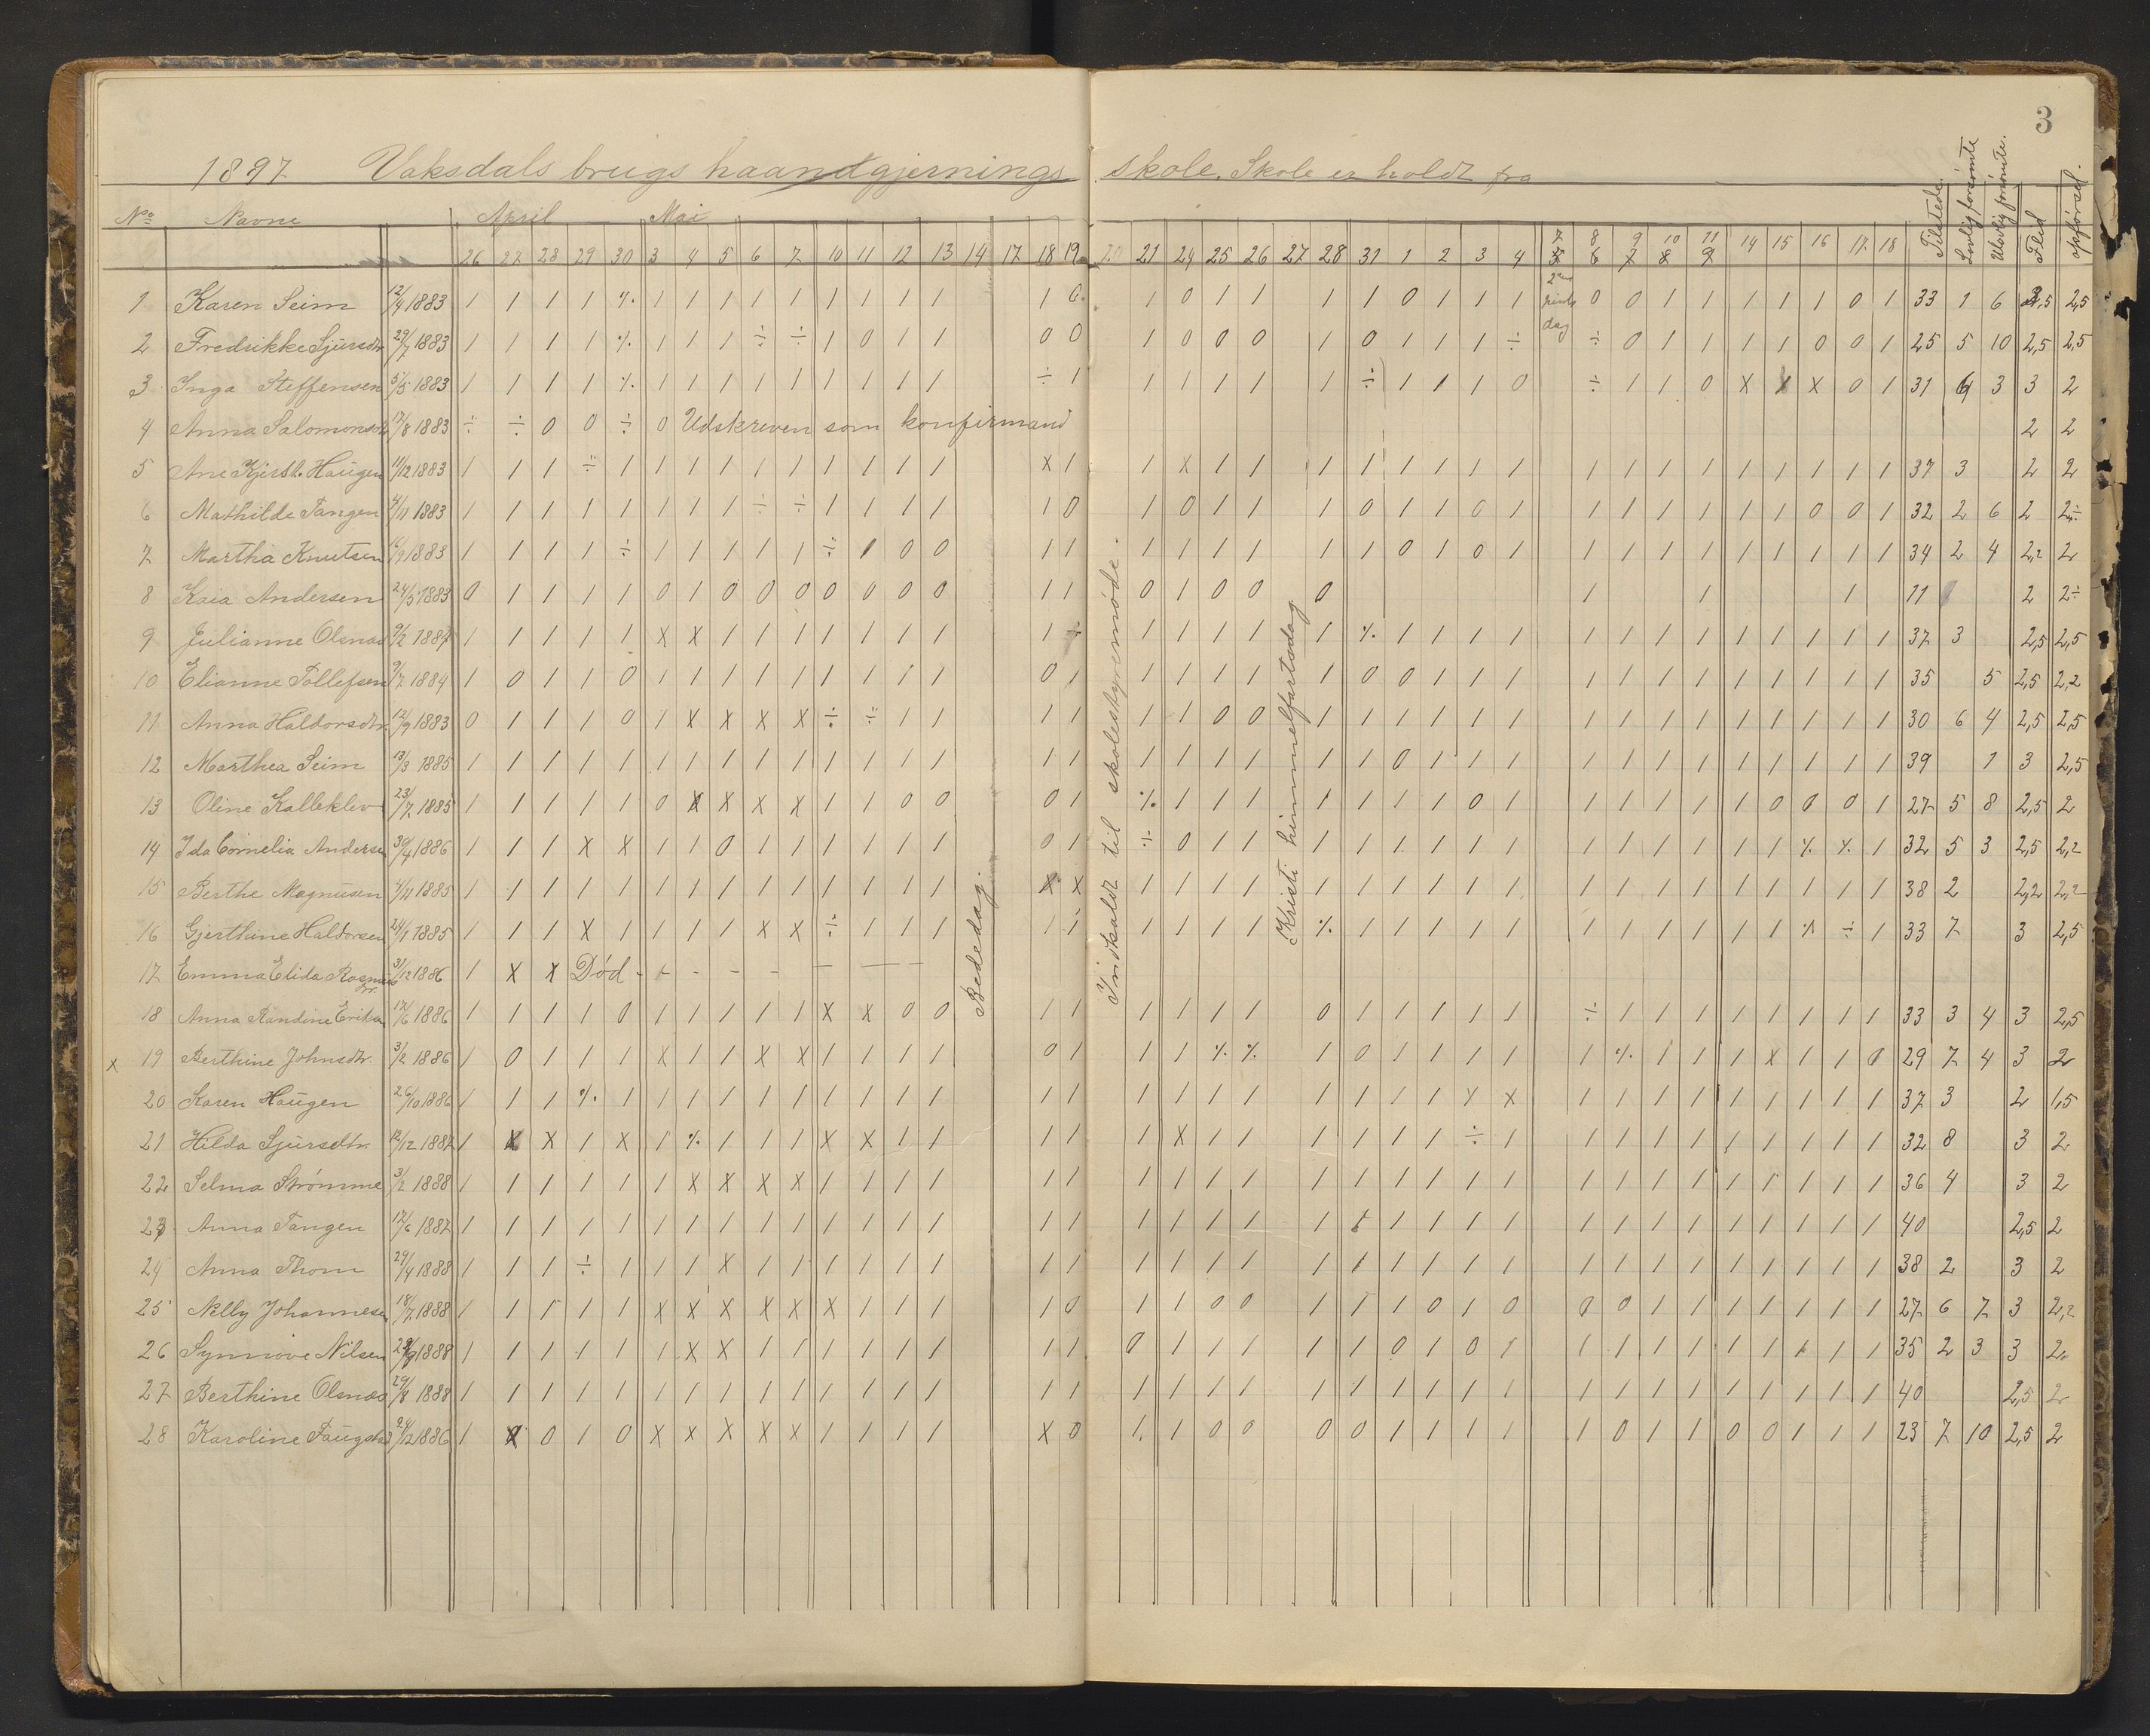 3
1897 Vaksdals brugs haandgjernings skole. Skole er holdt fra
No Navne April Mai Tilstede. Lovlig forsömte Ulovlig forsömte. Flid opførsel.
26 27 28 29 30 3 4 5 6 7 10 11 12 13 14 17 18 19 20 21 24 25 26 27 28 31 1 2 3 4 7 8 9 10 11 14 15 16 17 18
6 7 8 9
2den pinsedag
Bededag.
Indkaldt til skolestyremøde.
Kristi himmelfartsdag
1 Karen Seim 12/4 1883 1 1 1 1 ٪ 1 1 1 1 1 1 1 1 1 1 0 1 0 1 1 1 1 0 1 1 1 0 0 1 1 1 1 1 0 1 33 1 6 2,5 2,5
2 Fredrikke Sjürsdtr 29/7 1883 1 1 1 1 ٪ 1 1 1 ÷ ÷ 1 0 1 1 0 0 1 0 0 0 1 0 1 1 1 ÷ ÷ 0 1 1 1 1 0 0 1 25 5 10 2,5 2,5
3 Inga Steffensen 5/5 1883 1 1 1 1 ٪ 1 1 1 1 1 1 1 1 1 ÷ 1 1 1 1 1 1 ÷ 1 1 1 0 ÷ 1 1 0 x x x 0 1 31 6 3 3 2
4 Anna Salomonsdtr 17/8 1883 ÷ ÷ 0 0 ÷ 0 Udskreven som konfirmand 2 2
5 Ane Kjerst. Haügen 11/12 1883 1 1 1 ÷ 1 1 1 1 1 1 1 1 1 1 x 1 1 x 1 1 1 1 1 1 1 1 1 1 1 1 1 1 1 1 1 37 3 2 2
6 Mathilde Tangen 4/11 1883 1 1 1 1 1 1 1 1 ÷ ÷ 1 1 1 1 1 0 1 0 1 1 1 0 1 1 0 1 1 1 1 1 1 1 0 0 1 32 2 6 2 2÷
7 Martha Knutsen 16/9 1883 1 1 1 1 ÷ 1 1 1 1 1 ÷ 1 0 0 1 1 1 1 1 1 1 1 0 1 0 1 1 1 1 1 1 1 1 1 1 34 2 4 2,2 2
8 Kaia Andersen 24/5 1883 0 1 1 1 1 0 1 0 0 0 0 0 0 0 1 1 0 1 0 0 0 1 1 1 11 2 2÷
9 Julianne Olsnæs 9/2 1884 1 1 1 1 1 x x 1 1 1 1 1 1 1 1 ÷ 1 1 1 1 1 ٪ 1 1 1 1 1 1 1 1 1 1 1 1 1 37 3 2,5 2,5
10 Elianne Tollefsen 9/7 1884 1 0 1 1 0 1 1 1 1 1 1 1 1 1 0 1 1 1 1 1 1 0 0 1 1 1 1 1 1 1 1 1 1 1 1 35 5 2,5 2,2
11 Anna Haldorsdtr. 12/9 1883 0 1 1 1 0 1 x x x x ÷ ÷ 1 1 1 1 1 1 0 0 1 1 1 1 1 1 1 1 1 1 1 1 1 1 1 30 6 4 2,5 2,5
12 Marthea Seim 13/3 1885 1 1 1 1 1 1 1 1 1 1 1 1 1 1 1 1 1 1 1 1 1 1 0 1 1 1 1 1 1 1 1 1 1 1 1 39 1 3 2,5
13 Oline Kalleklev 23/7 1885 1 1 1 1 1 0 x x x x 1 1 0 0 0 1 ٪ 1 1 1 1 1 1 1 0 1 1 1 1 1 1 0 0 0 1 27 5 8 2,5 2
14 Ida Cornelia Andersen 30/4 1886 1 1 1 x x 1 1 0 1 1 1 1 1 1 0 1 ÷ 0 1 1 1 1 1 1 1 1 1 1 1 1 1 1 ٪ ٪ 1 32 5 3 2,5 2,2
15 Berthe Magnüsen 4/11 1885 1 1 1 1 1 1 1 1 1 1 1 1 1 1 x x 1 1 1 1 1 1 1 1 1 1 1 1 1 1 1 1 1 1 1 38 2 2,2 2,2
16 Gjerthine Haldorsen 24/1 1885 1 1 1 x 1 1 1 1 x x ÷ 1 1 1 1 ÷ 1 1 1 1 ٪ 1 1 1 1 1 1 1 1 1 1 1 ٪ ÷ 1 33 7 3 2,5
17 Emma Elida 3/12 1886 1 x x Död - - - - - - - -
18 Anna Randine Eriksen 17/6 1886 1 1 1 1 0 1 1 1 1 1 x x 0 0 1 1 1 1 1 1 0 1 1 1 1 1 ÷ 1 1 1 1 1 1 1 1 33 3 4 3 2,5
x 19 Berthine Johnsdtr. 3/2 1886 1 0 1 1 1 x 1 1 x x 1 1 1 1 0 1 1 1 ٪ ٪ 1 0 1 1 1 1 1 ٪ 1 1 1 x 1 1 0 29 7 4 3 2
20 Karen Haügen 26/10 1886 1 1 1 ٪ 1 1 1 1 1 1 1 1 1 1 1 1 1 1 1 1 1 1 1 1 x x 1 1 1 1 1 1 1 1 1 37 3 2 1,5
21 Hilda Sjürsdtr. 12/12 1887 1 x x 1 x 1 ٪ 1 1 1 x x 1 1 1 1 1 x 1 1 1 1 1 1 ÷ 1 1 1 1 1 1 1 1 1 1 32 8 3 2
22 Selma Strömme 3/2 1888 1 1 1 1 1 1 x x x x 1 1 1 1 1 1 1 1 1 1 1 1 1 1 1 1 1 1 1 1 1 1 1 1 1 36 4 3 2
23 Anna Tangen 17/6 1887 1 1 1 1 1 1 1 1 1 1 1 1 1 1 1 1 1 1 1 1 1 1 1 1 1 1 1 1 1 1 1 1 1 1 1 40 2,5 2
24 Anna Thom 29/4 1888 1 1 1 ÷ 1 1 1 x 1 1 1 1 1 1 1 1 1 1 1 1 1 1 1 1 1 1 1 1 1 1 1 1 1 1 1 38 2 3 2
25 Nelly Johannesen 18/7 1888 1 1 1 1 1 x x x x x x 1 1 1 1 0 1 1 0 0 1 1 1 0 1 0 0 0 1 1 1 1 1 1 1 27 6 7 3 2,2
26 Synnöve Nilsen 1888 1 1 1 1 1 1 x x 1 1 1 1 1 1 1 1 0 1 1 1 1 1 0 1 0 1 1 1 1 1 1 1 1 1 1 35 2 3 3 2
27 Berthine Olsnæs 29/8 1888 1 1 1 1 1 1 1 1 1 1 1 1 1 1 1 1 1 1 1 1 1 1 1 1 1 1 1 1 1 1 1 1 1 1 1 40 2,5 2
28 Karoline 1886 1 x 0 1 0 x x x x x 1 1 1 1 x 0 1 1 0 0 0 0 1 1 1 1 1 0 1 1 0 0 1 1 1 23 7 10 2,5 2